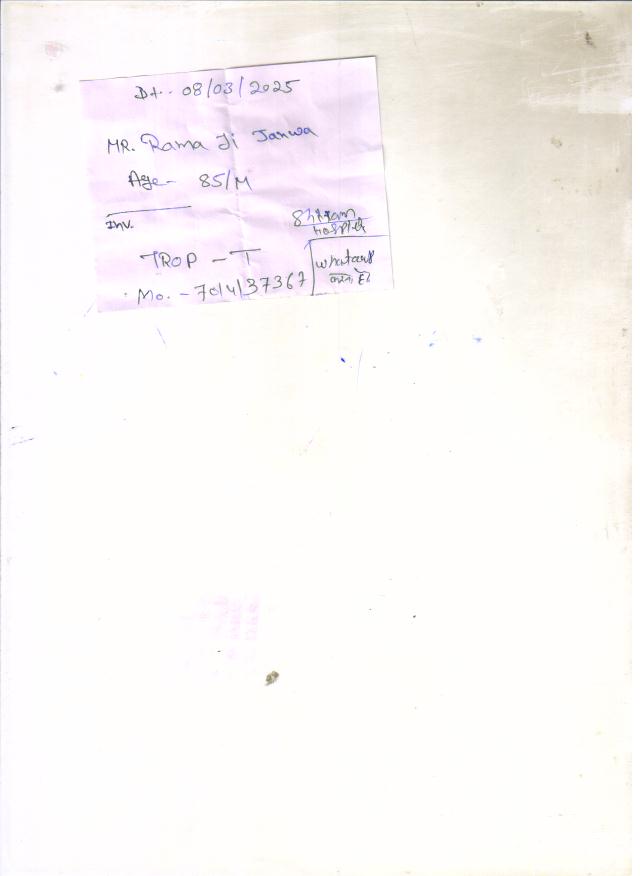 Dt.. 08/03/2025
MR. Rama Ji Janwa
Age- 85/M
Inv.
Shriram
Hospital
TROP - T
whatsaus
करना है
Mo. - 7014137367